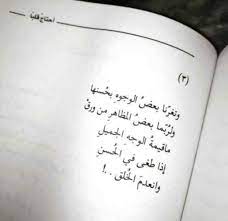 أحتاج قلبك
(٣)
وتغرّنا بعضُ الوجوهِ بحُسنها
ولربّما بعضُ المظاهرِ من ورقْ
ماقيمةُ الوجه الجميلِ
إذا طغى في الحُسنِ
وانعدمَ الخُلق ..!